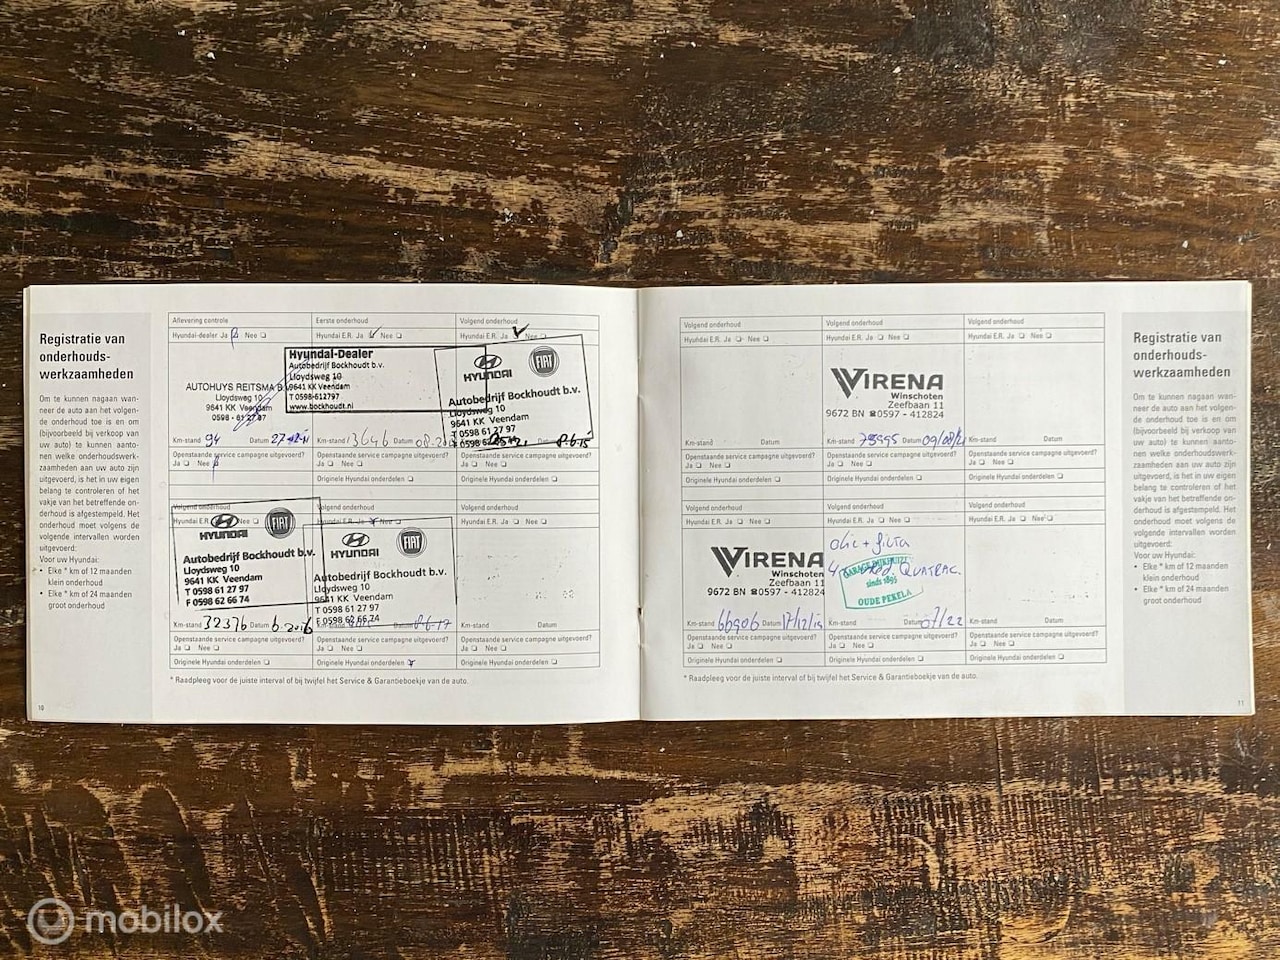 Registratie van
onderhouds-
werkzaamheden
Om te kunnen nagaan wan-
neer de auto aan het volgen-
de onderhoud toe is en om
(bijvoorbeeld bij verkoop van
uw auto) te kunnen aanto-
nen welke onderhoudswerk-
zaamheden aan uw auto zijn
uitgevoerd, is het in uw eigen
belang te controleren of het
vakje van het betreffende on-
derhoud is afgestempeld. Het
onderhoud moet volgens de
volgende intervallen worden
uitgevoerd:
Voor uw Hyundai:
• Elke * km of 12 maanden
klein onderhoud
• Elke * km of 24 maanden
groot onderhoud
10
Aflevering controle
Hyundai-dealer Ja Nee
AUTOHUYS REITSMA
Lloydsweg 10
9641 KK Veendam
Km-stand 94 Datum
Openstaande service campagne uitgevoerd?
Ja Nee
Eerste onderhoud
Hyundai E.R. Ja Nee
Hyundai-Dealer
Autobedrijf Bockhoudt b.v.
Lloydsweg 10
9641 KK Veendam
T 0598-612797
www.bockhoudt.nl
Km-stand 13646 Datum
Openstaande service campagne uitgevoerd?
Ja Nee
Originele Hyundai onderdelen
Volgend onderhoud
Hyundai E.R. Ja Nee
HYUNDAI
FIAT
Autobedrijf Bockhoudt b.v.
Lloydsweg 10
9641 KK Veendam
T 0598 61 27 97
8-6-15
Openstaande service campagne uitgevoerd?
Ja Nee
Originele Hyundai onderdelen
Volgend onderhoud
Hyundai E.R. Nee
HYUNDAI
FIAT
Autobedrijf Bockhoudt b.v.
Lloydsweg 10
9641 KK Veendam
T 0598 61 27 97
F 0598 62 66 74
Km-stand 32376 Datum 6-2016
Openstaande service campagne uitgevoerd?
Ja Nee
Originele Hyundai onderdelen
Volgend onderhoud
Hyundai E.R. Ja Nee
HYUNDAI
FIAT
Autobedrijf Bockhoudt b.v.
Lloydsweg 10
9641 KK Veendam
T 0598 61 27 97
F 0598 62 66 74
8-6-17
Openstaande service campagne uitgevoerd?
Ja Nee
Originele Hyundai onderdelen
Volgend onderhoud
Hyundai E.R. Ja Nee
Datum
Openstaande service campagne uitgevoerd?
Ja Nee
Originele Hyundai onderdelen
* Raadpleeg voor de juiste interval of bij twijfel het Service & Garantieboekje van de auto.
Volgend onderhoud
Hyundai E.R. Ja Nee
Km-stand Datum
Openstaande service campagne uitgevoerd?
Ja Nee
Originele Hyundai onderdelen
Volgend onderhoud
Hyundai E.R. Ja Nee
VIRENA
Winschoten
Zeefbaan 11
9672 BN ☎0597 - 412824
Km-stand Datum 09/08/21
Openstaande service campagne uitgevoerd?
Ja Nee
Originele Hyundai onderdelen
Volgend onderhoud
Hyundai E.R. Ja Nee
Km-stand Datum
Openstaande service campagne uitgevoerd?
Ja Nee
Originele Hyundai onderdelen
Volgend onderhoud
Hyundai E.R. Ja Nee
VIRENA
Winschoten
Zeefbaan 11
9672 BN ☎0597 - 412824
Km-stand 66906 Datum
Openstaande service campagne uitgevoerd?
Ja Nee
Originele Hyundai onderdelen
Volgend onderhoud
Hyundai E.R. Ja Nee
QUATRAC.
sinds 1895
OUDE PEKELA
Km-stand Datum 07/22
Openstaande service campagne uitgevoerd?
Ja Nee
Originele Hyundai onderdelen
Volgend onderhoud
Hyundai E.R. Ja Nee
Km-stand Datum
Openstaande service campagne uitgevoerd?
Ja Nee
Originele Hyundai onderdelen
* Raadpleeg voor de juiste interval of bij twijfel het Service & Garantieboekje van de auto.
Registratie van
onderhouds-
werkzaamheden
Om te kunnen nagaan wan-
neer de auto aan het volgen-
de onderhoud toe is en om
(bijvoorbeeld bij verkoop van
uw auto) te kunnen aanto-
nen welke onderhoudswerk-
zaamheden aan uw auto zijn
uitgevoerd, is het in uw eigen
belang te controleren of het
vakje van het betreffende on-
derhoud is afgestempeld. Het
onderhoud moet volgens de
volgende intervallen worden
uitgevoerd:
Voor uw Hyundai:
• Elke * km of 12 maanden
klein onderhoud
• Elke * km of 24 maanden
groot onderhoud
11
mobilox